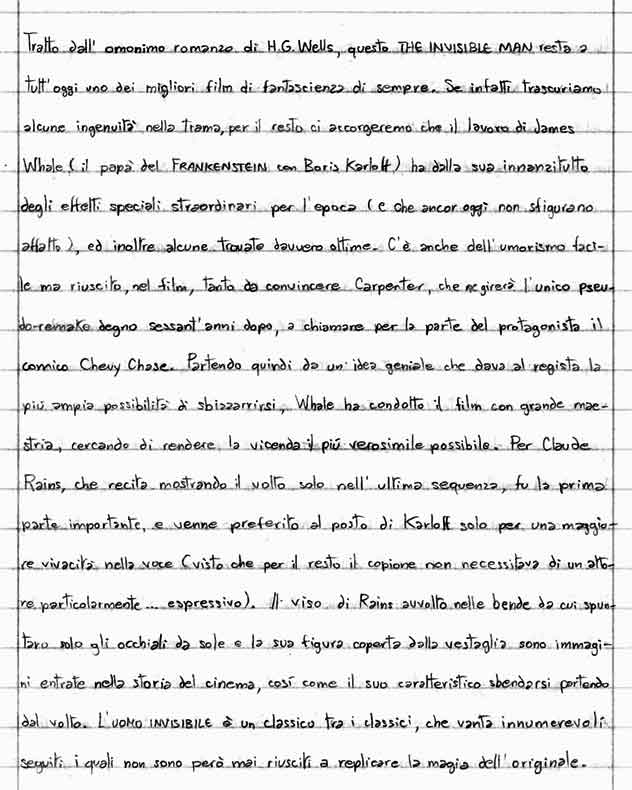 Tratto dall' omonimo romanzo di H.G. Wells, questo THE INVISIBLE MAN resta a
tutt'oggi uno dei migliori film di fantascienza di sempre. Se infatti trascuriamo
alcune ingenuità nella trama, per il resto ci accorgeremo che il lavoro di James
Whale (il papà del FRANKENSTEIN con Boris Karloff) ha dalla sua innanzitutto
degli effetti speciali straordinari per l'epoca (e che ancor oggi non sfigurano
affatto), ed inoltre alcune trovate davvero ottime. C'è anche dell'umorismo faci-
le ma riuscito, nel film, tanto da convincere Carpenter, che ne girerà l'unico pseu-
do-remake degno sessant'anni dopo, a chiamare per la parte del protagonista il
comico Chevy Chase. Partendo quindi da un'idea geniale che dava al regista la
più ampia possibilità di sbizzarrirsi, Whale ha condotto il film con grande mae-
stria, cercando di rendere la vicenda il più verosimile possibile. Per Claude
Rains, che recita mostrando il volto solo nell'ultima sequenza, fu la prima
parte importante, e venne preferito al posto di Karloff solo per una maggio-
re vivacità nella voce (visto che per il resto il copione non necessitava di un atto-
re particolarmente... espressivo). Il viso di Rains avvolto nelle bende da cui spun-
tano solo gli occhiali da sole e la sua figura coperta dalla vestaglia sono immagi-
ni entrate nella storia del cinema, così come il suo caratteristico sbendarsi partendo
dal volto. L'UOMO INVISIBILE è un classico tra i classici, che vanta innumerevoli
seguiti i quali non sono però mai riusciti a replicare la magia dell'originale.